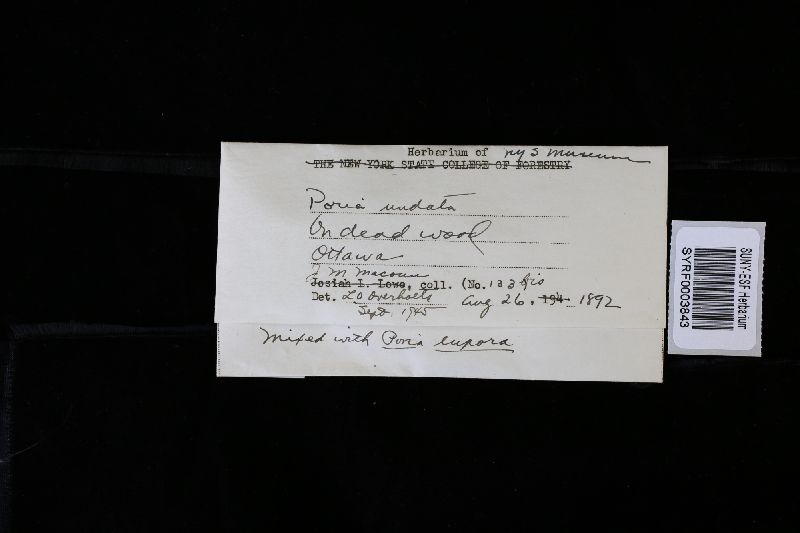 Herbarium of NYS Museum
THE NEW YORK STATE COLLEGE OF FORESTRY
Poria undata
On dead wood
Ottawa
J M Macoun
Josiah L. Lowe, coll. (No. 133 bis
Det. L O Overholts Aug 26. 194 1892
Sept 1945
Mixed with Poria eupora
SUNY-ESF Herbarium
SYRF0003843